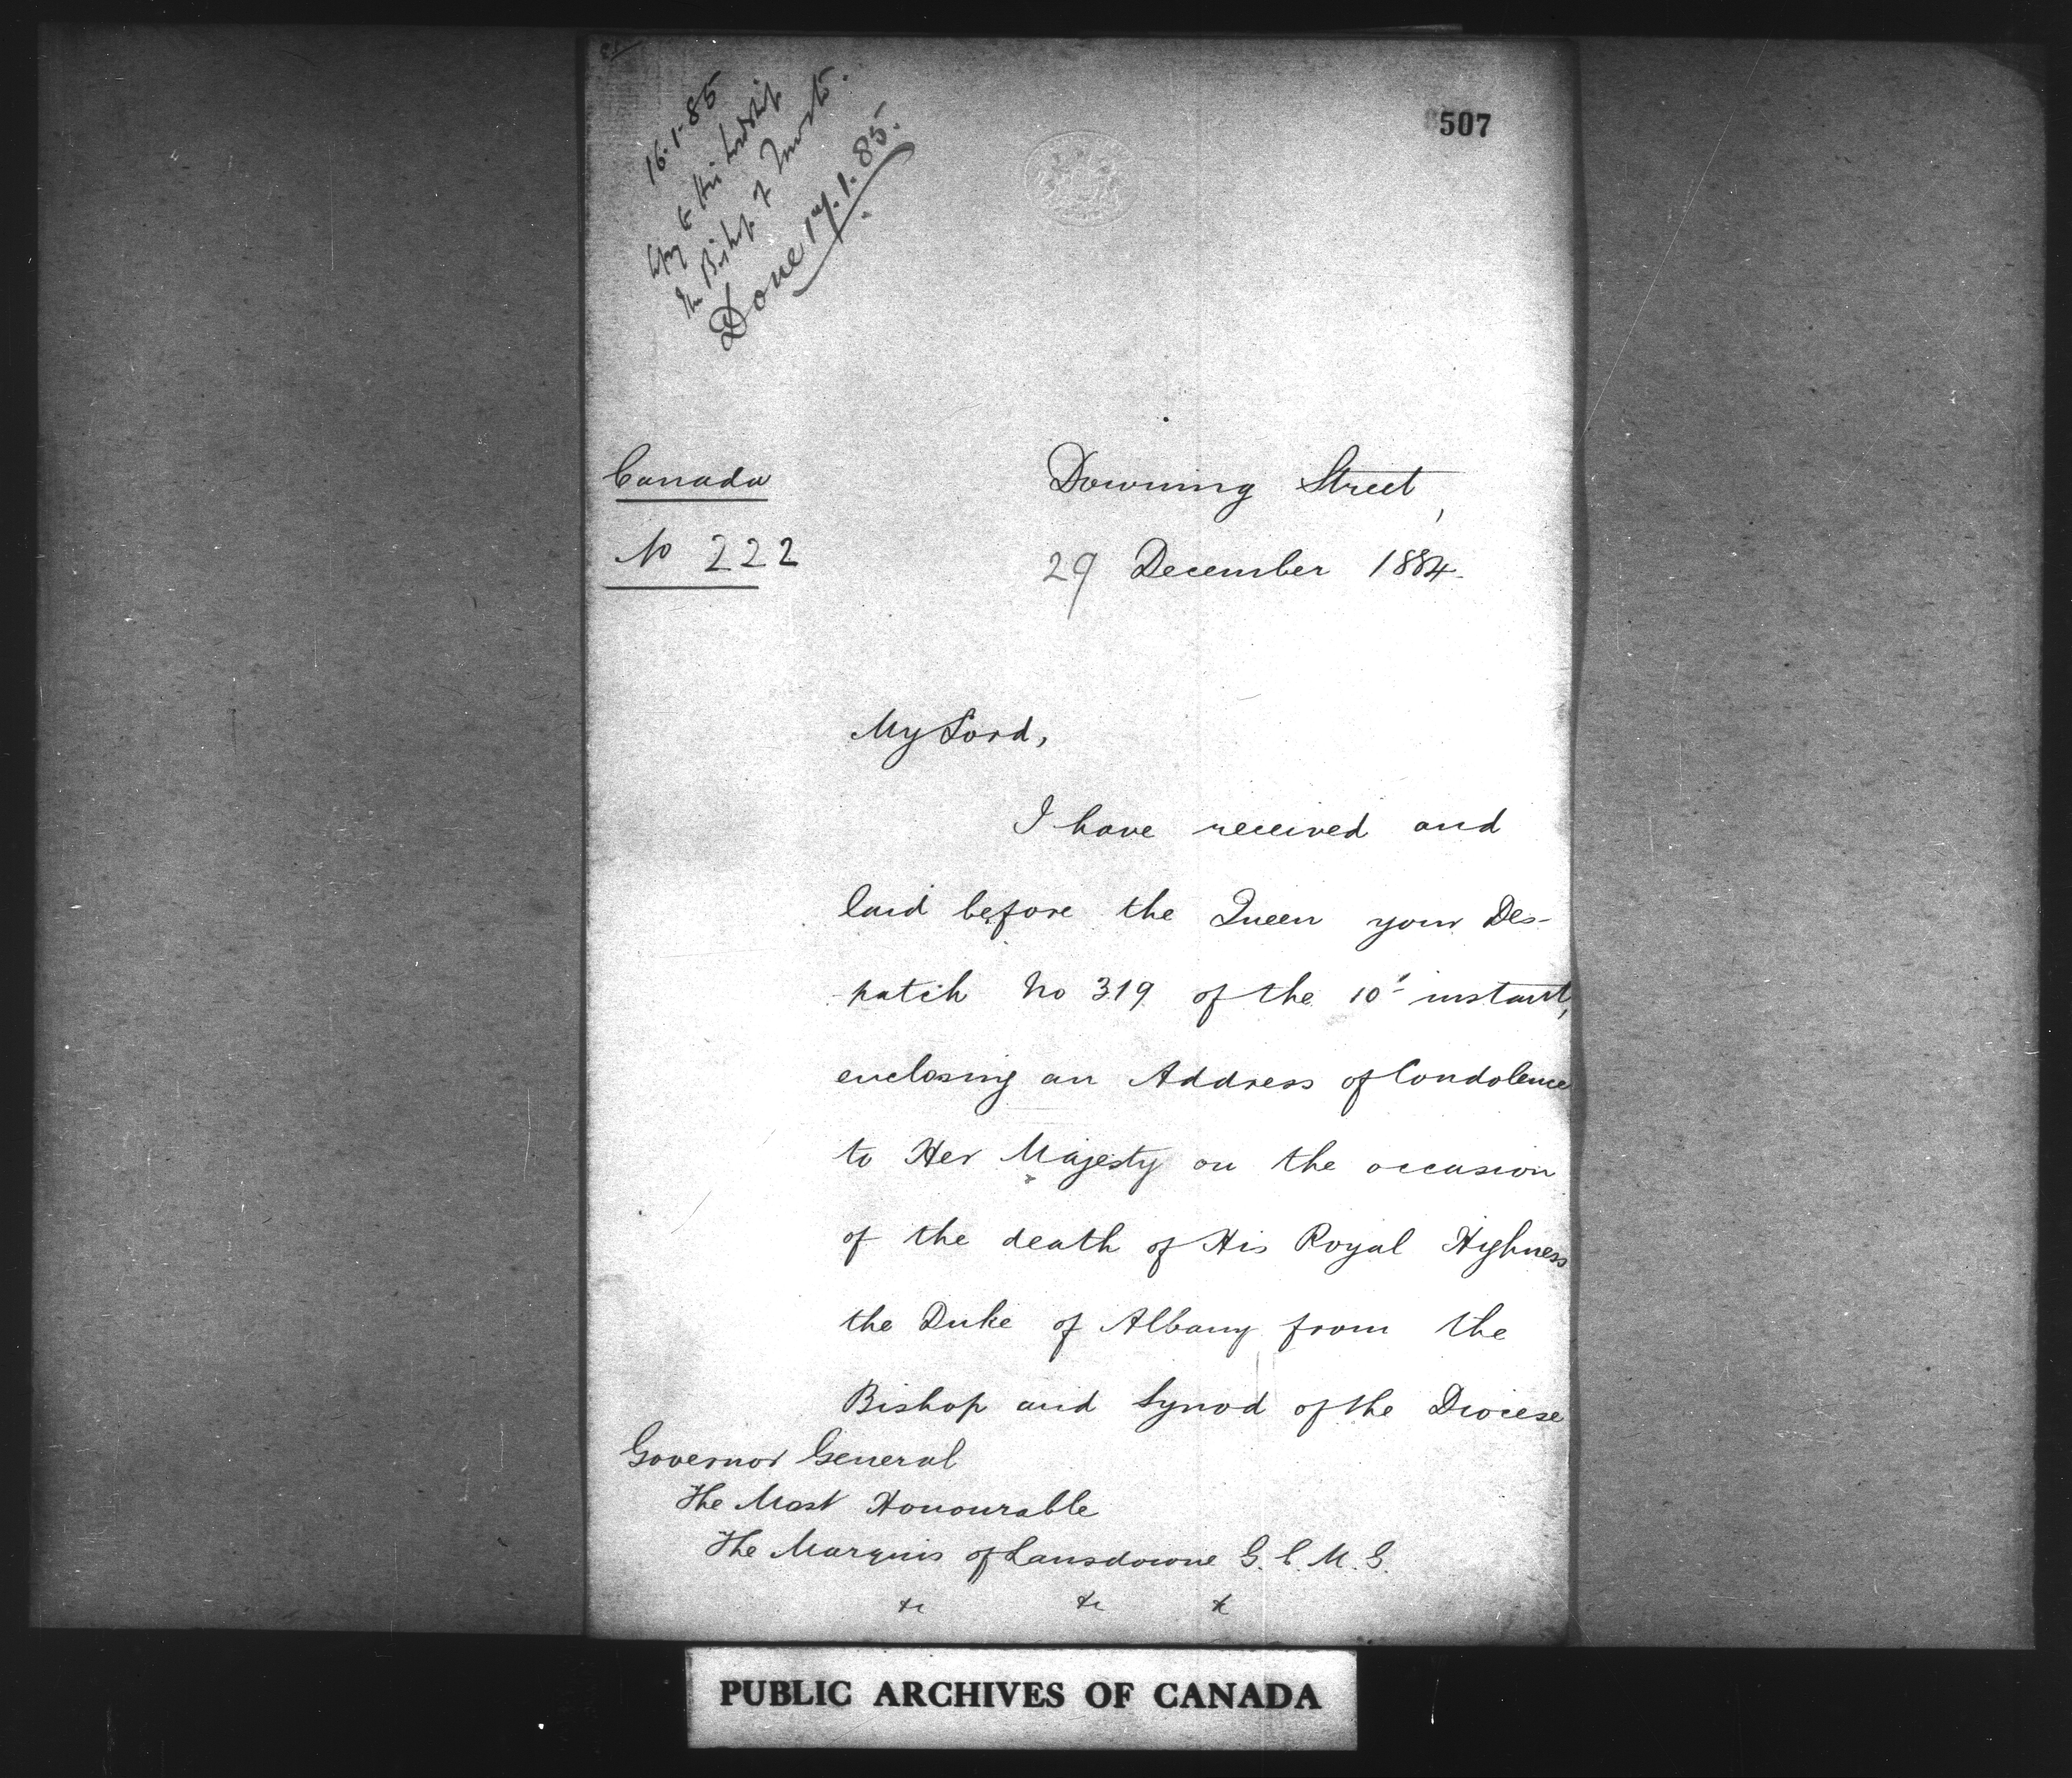 507
16.1.85
Copy to His Lordship
the Bishop of Toronto.
Done 17.1.85.
Canada
No 222
Downing Street,
29 December 1884.
My Lord,
I have received and
laid before the Queen your Des-
-patch No 319 of the 10th instant,
enclosing an Address of Condolence
to Her Majesty on the occasion
of the death of His Royal Highness
the Duke of Albany from the
Bishop and Synod of the Diocese
Governor General
The Most Honourable
The Marquis of Lansdowne G.C.M.G.
&c &c &c
PUBLIC ARCHIVES OF CANADA